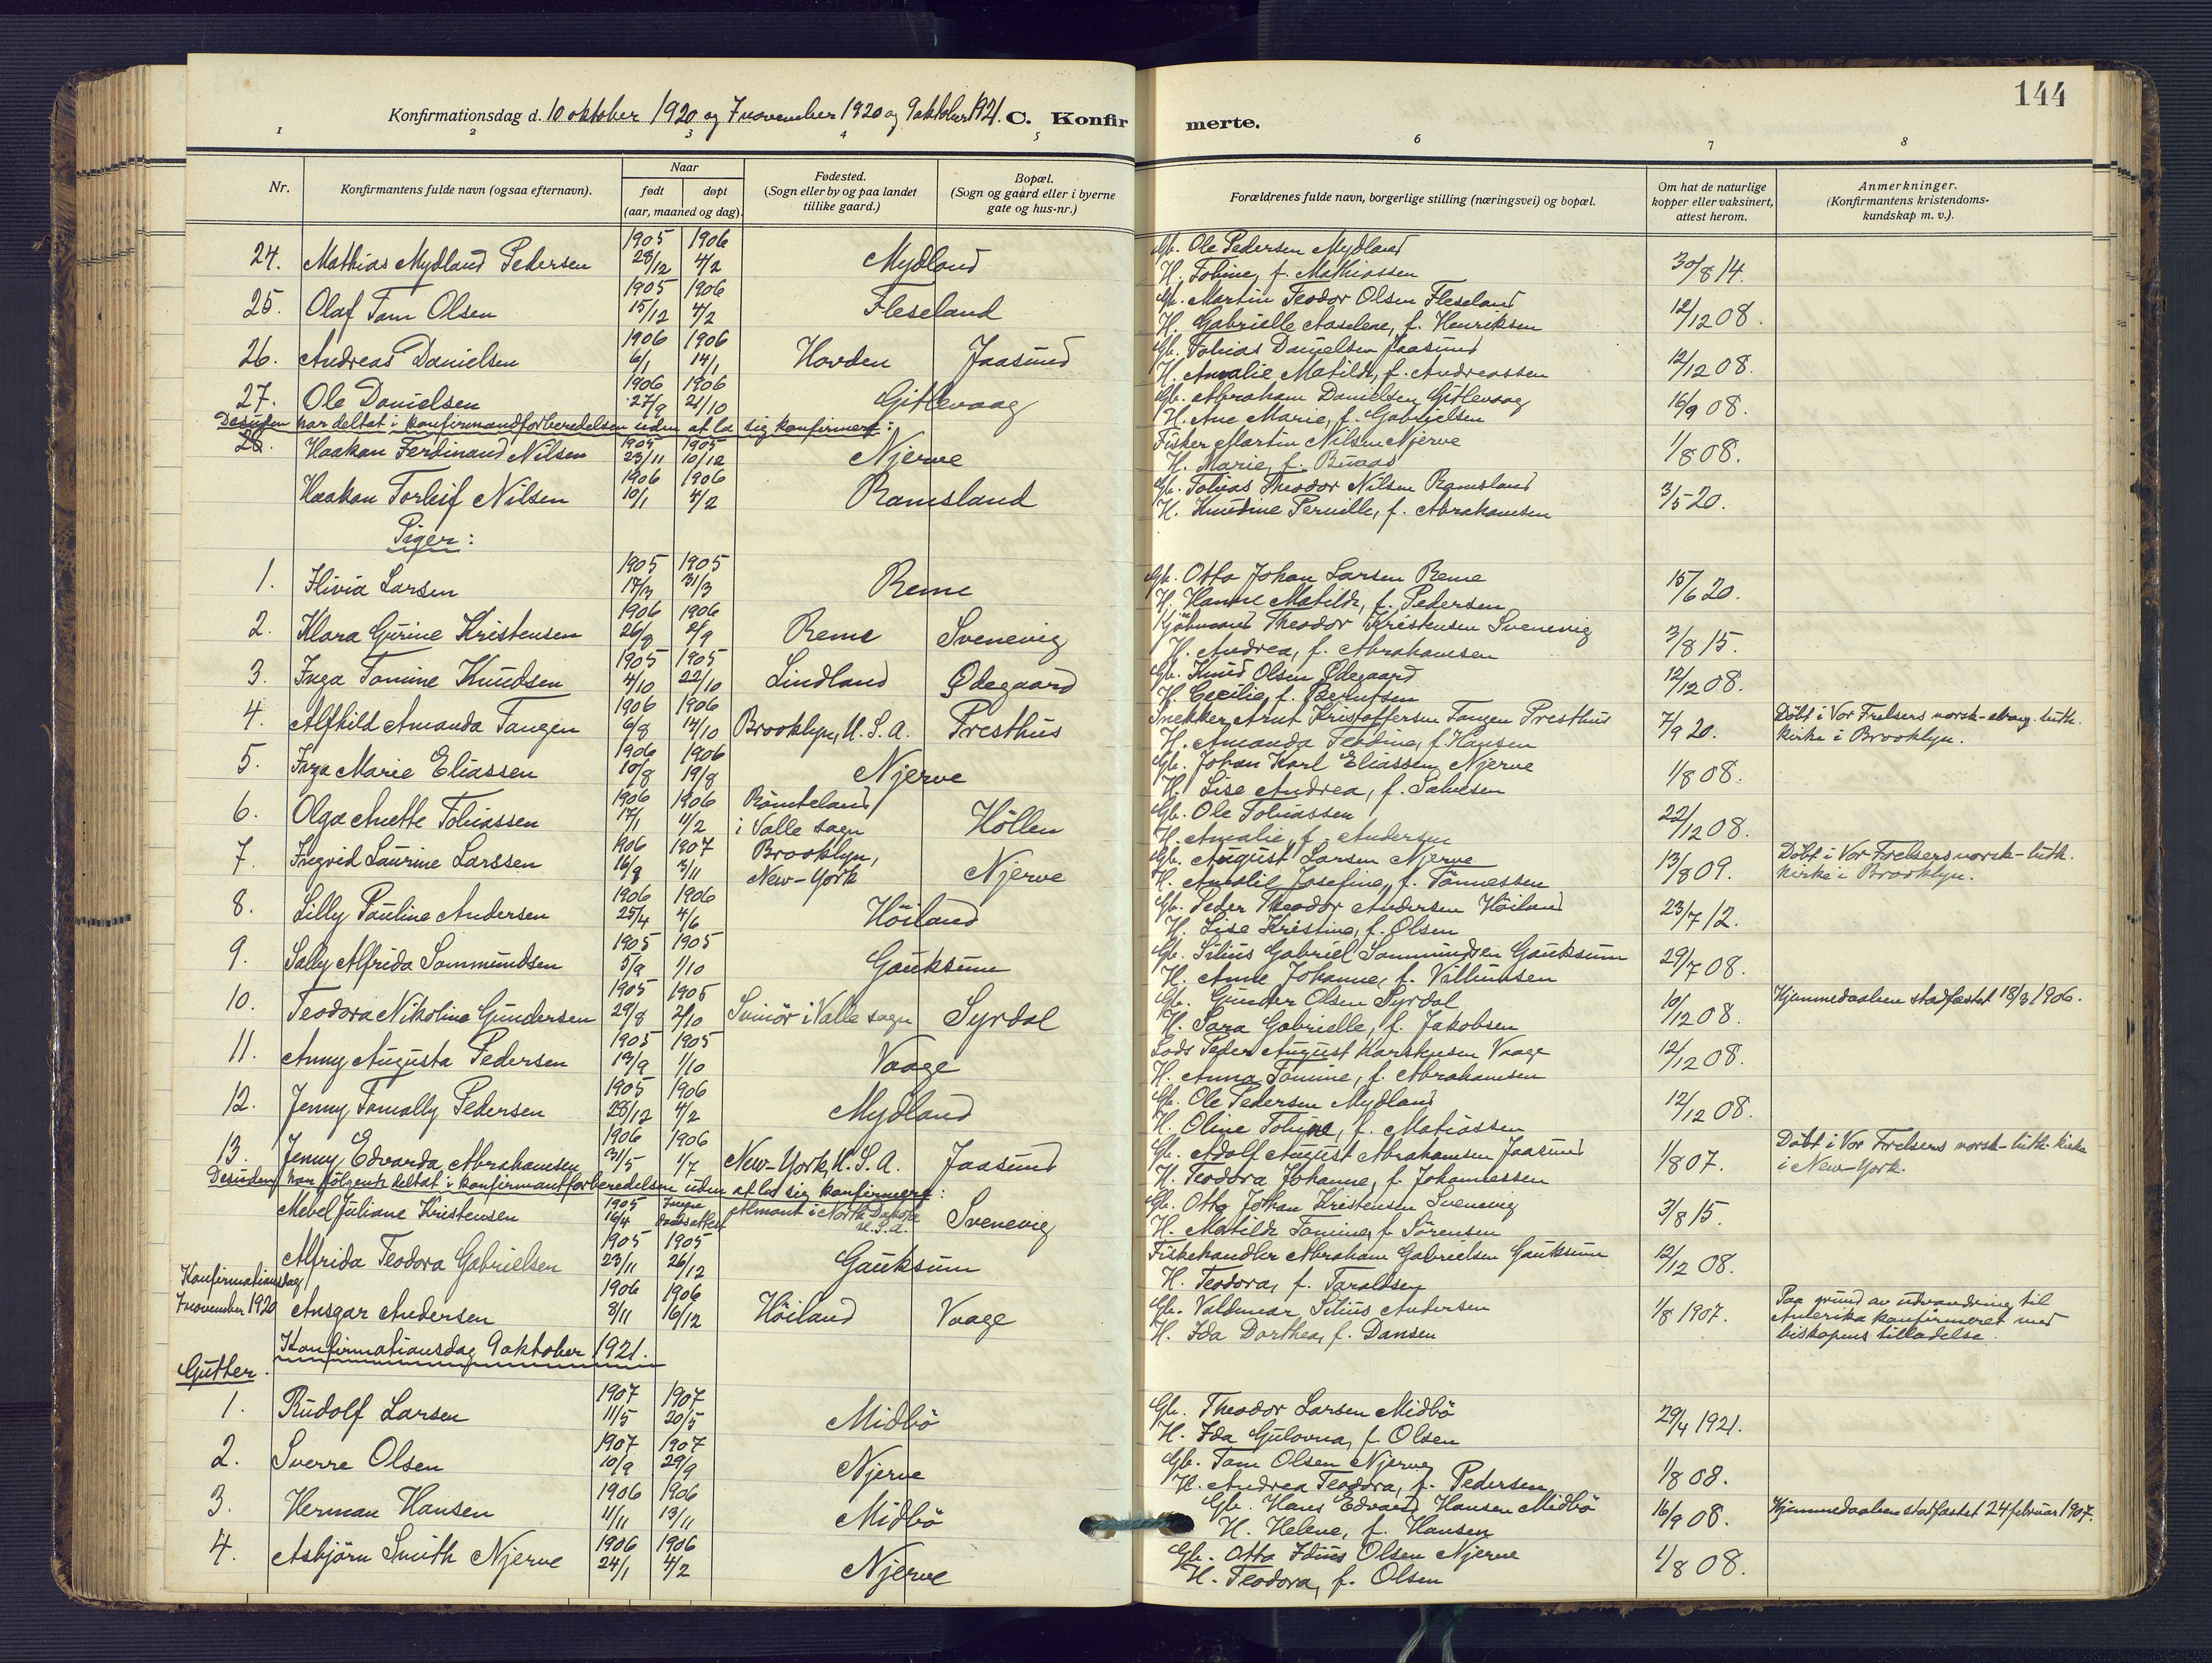 144
Konfirmationsdag d. 10 oktober 1920 og 7 november 1920 og 9 oktober 1921. C. Konfirmerte.
1 2 3 4 5 6 7 8
Nr. Konfirmantens fulde navn (ogsaa efternavn). Naar født døpt (aar, maaned og dag). Fødested. (Sogn eller by og paa landet tillike gaard.) Bopæl. (Sogn og gaard eller i byerne gate og hus-nr.) Forældrenes fulde navn, borgerlige stilling (næringsvei) og bopæl. Om hat de naturlige kopper eller vaksinert, attest herom. Anmerkninger. (Konfirmantens kristendomskundskap m. v.).
24. Mathias Mydland Pedersen 1905 28/12 1906 4/2 Mydland Gb. Ole Pedersen Mydland 30/8 14.
H. Tobine, f. Mathiassen
25. Olaf Tom Olsen 1905 15/12 1906 4/2 Fleseland Gb. Martin Teodor Olsen Fleseland 12/12 08.
H. Gabrielle Aaselene, f. Henriksen
26. Andreas Danielsen 1906 6/1 1906 14/1 Hovden Jaasund Gb. Tobias Danielsen Jaasund 12/12 08.
H. Amalie Matilde, f. Andreassen
27. Ole Danielsen 1906 27/9 1906 21/10 Gitlevaag Gb. Abraham Danielsen Gitlevaag 16/9 08.
H. Ane Marie, f. Gabrielsen
Desuden har deltat i konfirmandforberedelsen uden at la sig konfirmere:
28. Haakan Ferdinand Nilsen 1905 23/11 1905 10/12 Njerve Fisker Martin Nilsen Njerve 1/8 08.
H. Marie, f. Buaas
Haakon Torleif Nilsen 1906 10/1 1906 4/2 Ramsland Gb. Tobias Theodor Nilsen Ramsland 3/5 20.
H. Knudine Pernille, f. Abrahamsen
Piger:
1. Hivia Larsen 1905 17/3 1905 31/3 Reme Gb. Otto Johan Larsen Reme 15/6 20.
H. Hanne Matilde, f. Pedersen
2. Klara Gurine Kristensen 1906 26/8 1906 2/9 Reme Svenevig Sjömand Theodor Kristensen Svenevig 3/8 15.
H. Andrea, f. Abrahamsen
3. Inga Tomine Knudsen 1905 4/10 1905 22/10 Lindland Ødegaard Gb. Knud Olsen Ødegaard 12/12 08.
H. Cecilie, f. Berntsen
4. Alfhild Amanda Tangen 1906 6/8 1906 14/10 Brooklyn, U.S.A. Presthus Snekker Arnt Kristoffersen Tangen Presthus 7/9 20. Döbt i Vor Frelsers norsk-evang. luth.
H. Amanda Teodine, f. Hansen kirke i Brooklyn.
5. Inga Marie Eliassen 1906 10/8 1906 19/8 Njerve Gb. Johan Karl Eliassen Njerve 1/8 08.
H. Lise Andrea, f. Salvesen
6. Olga Anette Tobiassen 1906 17/1 1906 11/2 Römteland i Valle sogn Höllen Gb. Ole Tobiassen 22/12 08.
H. Amalie, f. Andersen
7. Ingrid Laurine Larssen 1906 16/9 1907 3/11 Brooklyn, New-York Njerve Gb. August Larsen Njerve 13/8 09. Döbt i Vor Frelsers norsk-luth.
H. Amalie Josefine, f. Tönnessen kirke i Brooklyn.
8. Lilly Pauline Andersen 1906 25/4 1906 4/6 Höiland Gb. Peder Theodor Andersen Höiland 23/7 12.
H. Lise Kristine, f. Olsen
9. Sally Alfrida Sommundsen 1905 5/9 1905 1/10 Gauksum Gb. Silius Gabriel Sommundsen Gauksum 29/7 08.
H. Anne Johanne, f. Villumsen
10. Teodora Nikoline Gundersen 1905 29/8 1905 2/10 Svinör i Valle sogn Syrdal Gb. Gunder Olsen Syrdal 10/12 08. Hjemmedaaben stadfæstet 18/3 1906.
H. Sara Gabrielle, f. Jakobsen
11. Anny Augusta Pedersen 1905 13/9 1905 1/10 Vaage Lods Peder August Karstensen Vaage 12/12 08.
H. Anna Tomine, f. Abrahamsen
12. Jenny Tomally Pedersen 1905 28/12 1906 4/2 Mydland Gb. Ole Pedersen Mydland 12/12 08.
H. Oline Tobine, f. Matiassen
13. Jenny Edvarda Abrahamsen 1906 31/5 1906 1/7 New-York, U.S.A. Jaasund Gb. Adolf August Abrahamsen Jaasund 1/8 07. Döbt i Vor Frelsers norsk-luth. kirke
H. Teodora Johanne, f. Johannessen i New-York.
Desuden har følgende deltat i konfirmantforberedelsen uden at la sig konfirmere:
Mebel Juliane Kristensen 1905 16/4 Ingen daabsattest Almont i North Dakota U.S.A. Svenevig Gb. Otto Johan Kristensen Svenevig 3/8 15.
H. Matilde Tomine, f. Sörensen
Alfrida Teodora Gabrielsen 1905 23/11 1905 26/12 Gauksum Fiskehandler Abraham Gabrielsen Gauksum 12/12 08.
H. Teodora, f. Taraldsen
Konfirmationsdag 7 november 1920 Ansgar Andersen 1906 8/11 1906 16/12 Höiland Vaage Gb. Valdemar Silius Andersen 1/8 1907. Paa grund av udvandring til
H. Ida Dorthea, f. Dansen Amerika konfirmeret med biskopens tilladelse.
Konfirmationsdag 9 oktober 1921.
Gutter.
1. Rudolf Larsen 1907 11/5 1907 20/5 Midbö Gb. Theodor Larsen Midbö 29/4 1921.
H. Ida Gulovna, f. Olsen
2. Sverre Olsen 1907 10/9 1907 29/9 Njerve Gb. Tom Olsen Njerve 1/8 08.
H. Andrea Teodora, f. Pedersen
3. Herman Hansen 1906 11/11 1906 13/11 Midbö Gb. Hans Edvard Hansen Midbö 16/9 08. Hjemmedaaben stadfæstet 24 februar 1907.
H. Helene, f. Hansen
4. Asbjörn Smith Njerve 1906 24/1 1906 4/2 Njerve Gb. Otto Idius Olsen Njerve 1/8 08.
H. Teodora, f. Olsen